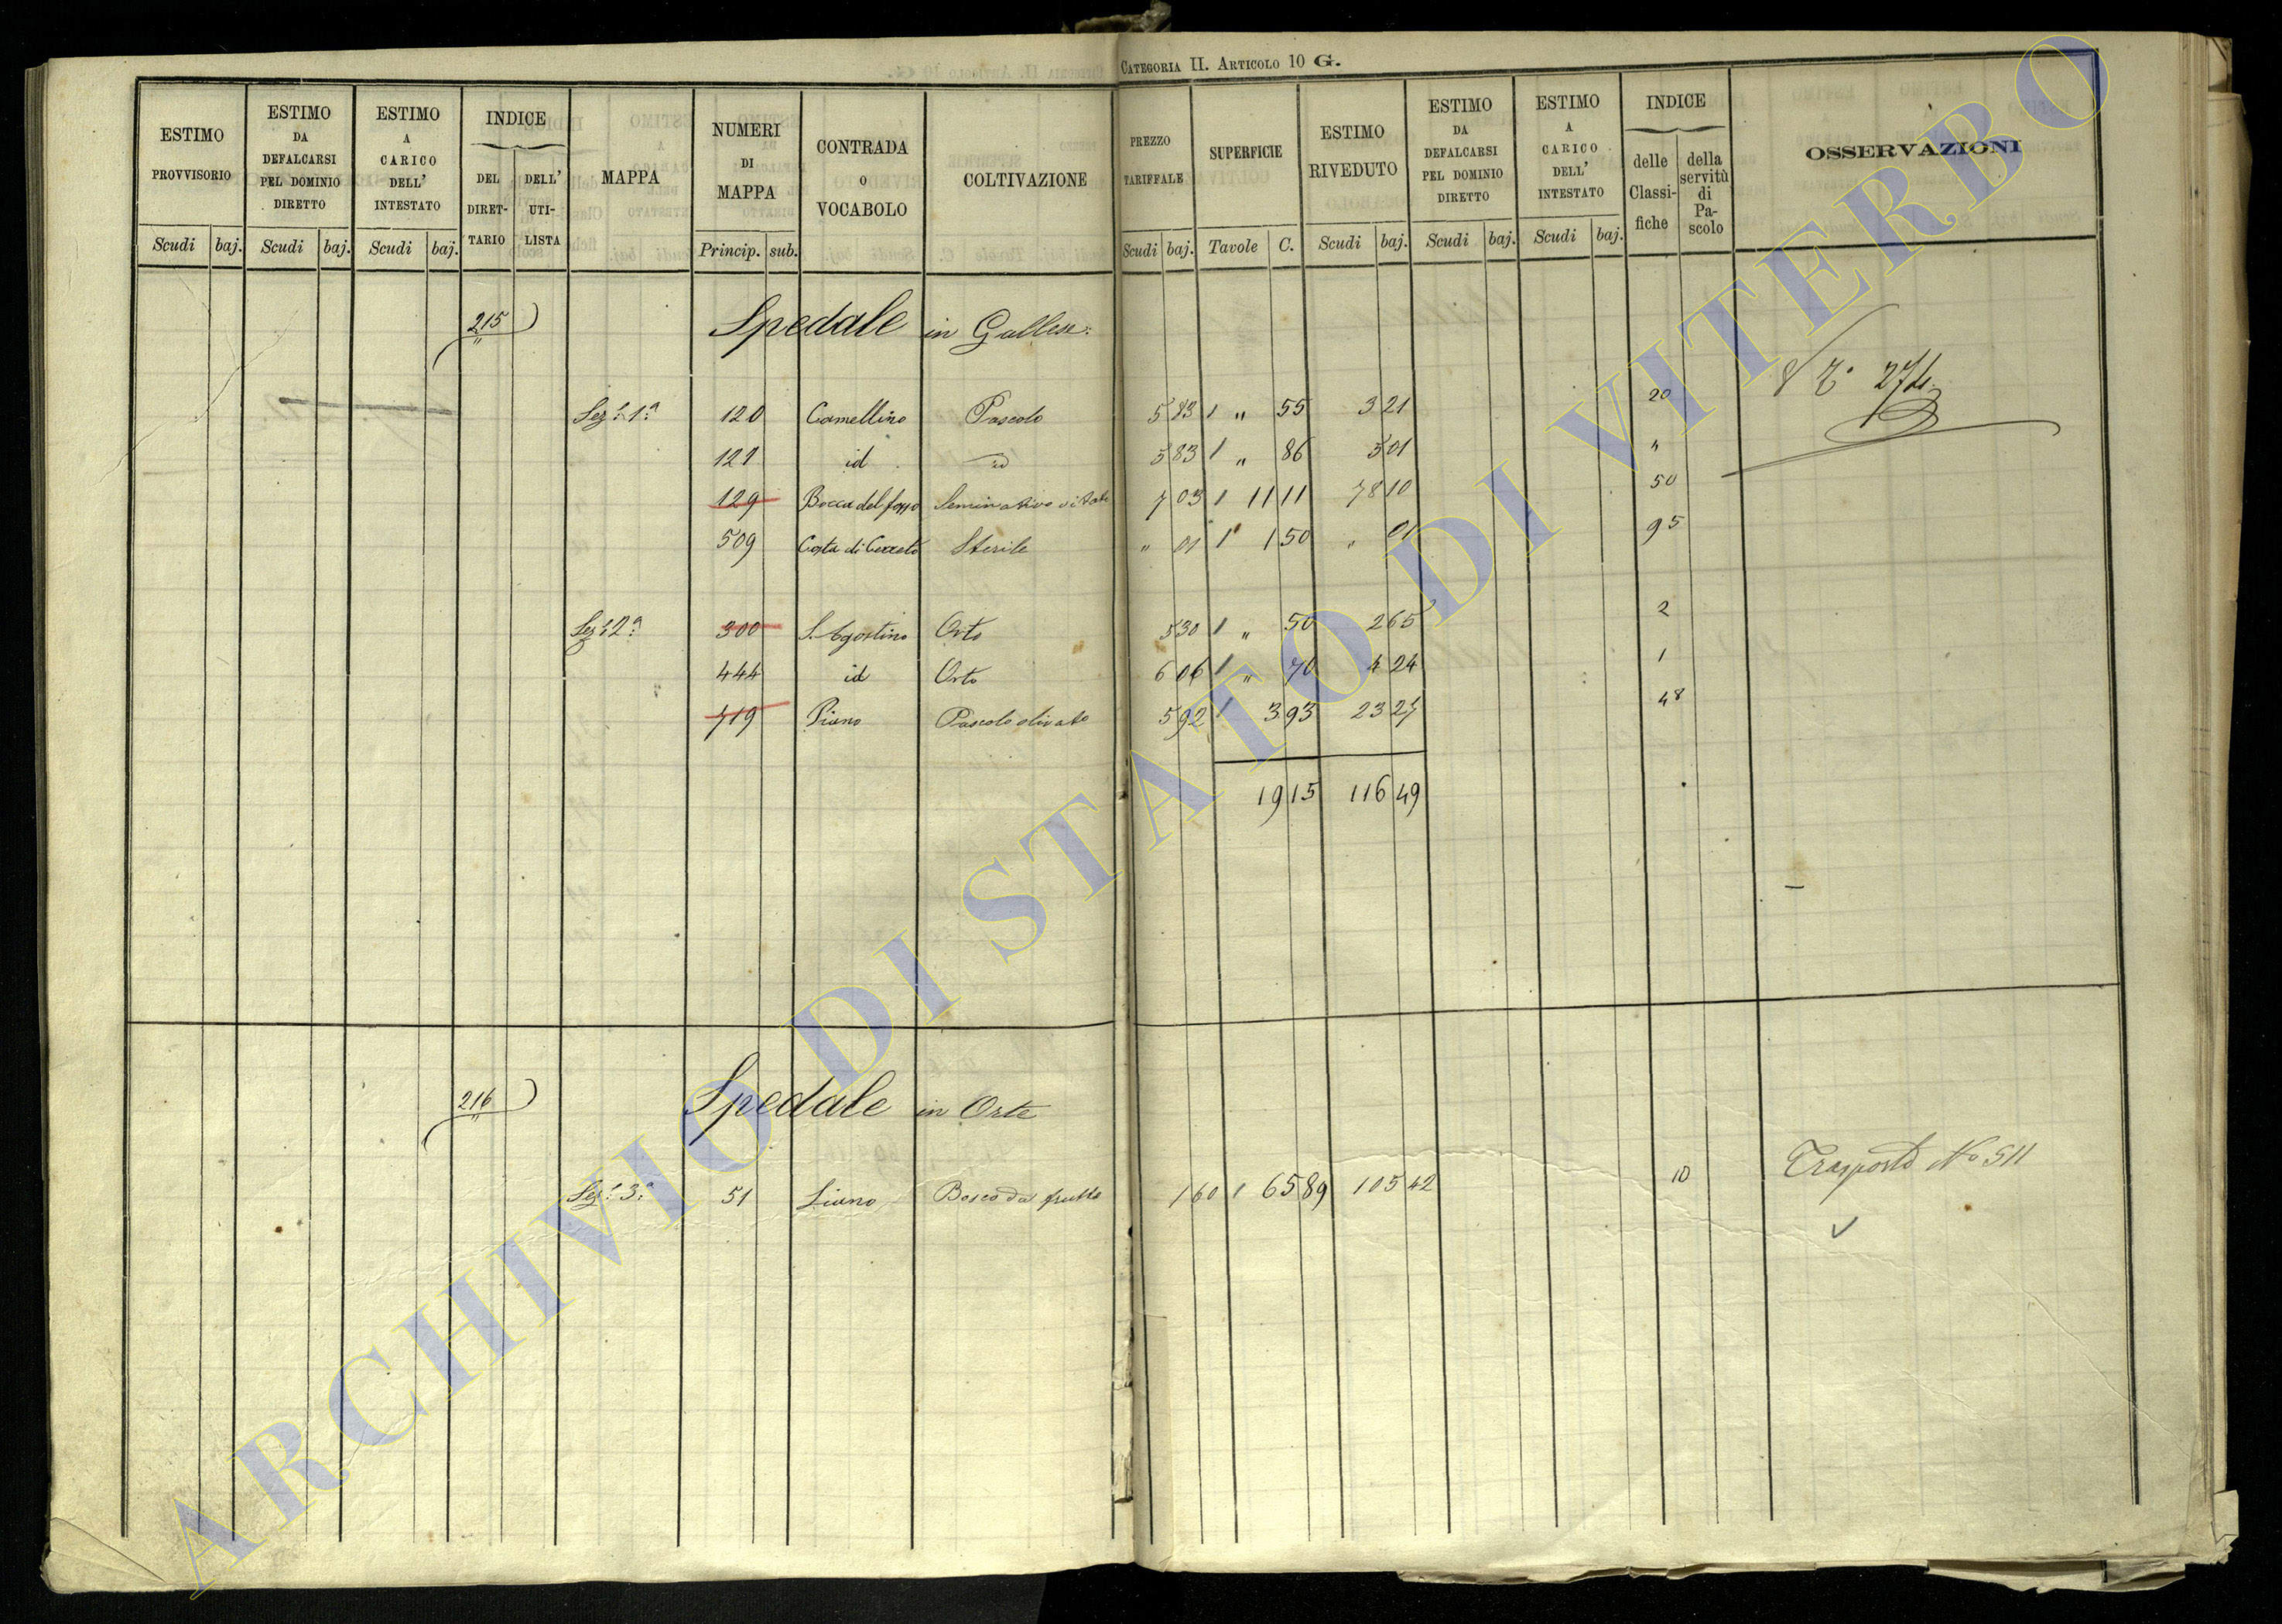 CATEGORIA II. ARTICOLO 10 G.
ESTIMO PROVVISORIO
ESTIMO DA DEFALCARSI PEL DOMINIO DIRETTO
ESTIMO A CARICO DELL' INTESTATO
INDICE
DEL DIRET-TARIO
DELL' UTI-LISTA
MAPPA
NUMERI DI MAPPA
CONTRADA O VOCABOLO
COLTIVAZIONE
PREZZO TARIFFALE
SUPERFICIE
ESTIMO RIVEDUTO
ESTIMO DA DEFALCARSI PEL DOMINIO DIRETTO
ESTIMO A CARICO DELL' INTESTATO
INDICE
delle Classi-fiche
della servitù di Pa-scolo
OSSERVAZIONI
Scudi baj. Scudi baj. Scudi baj. Princip. sub. Scudi baj. Tavole C. Scudi baj. Scudi baj. Scudi baj.
215 Spedale in Gallese:
Sez: 1:a 120 Camellino Pascolo 5 83 " 55 3 21 20 274
121 id id 5 83 " 86 5 01 "
129 Bocca del fosso Seminativo vitato 7 03 11 11 78 10 50
509 Costa di Cerreto Sterile " 01 1 50 " 01 95
Sez: 2:a 300 S. Agostino Orto 5 30 " 50 2 65 2
444 id Orto 6 06 " 70 4 24 1
719 Piano Pascolo olivato 5 92 3 93 23 27 48
19 15 116 49
216 Spedale in Orte
Sez: 3:a 51 Liano Bosco da frutto 1 60 65 89 105 42 10 Trasporto No 511
ARCHIVIO DI STATO DI VITERBO